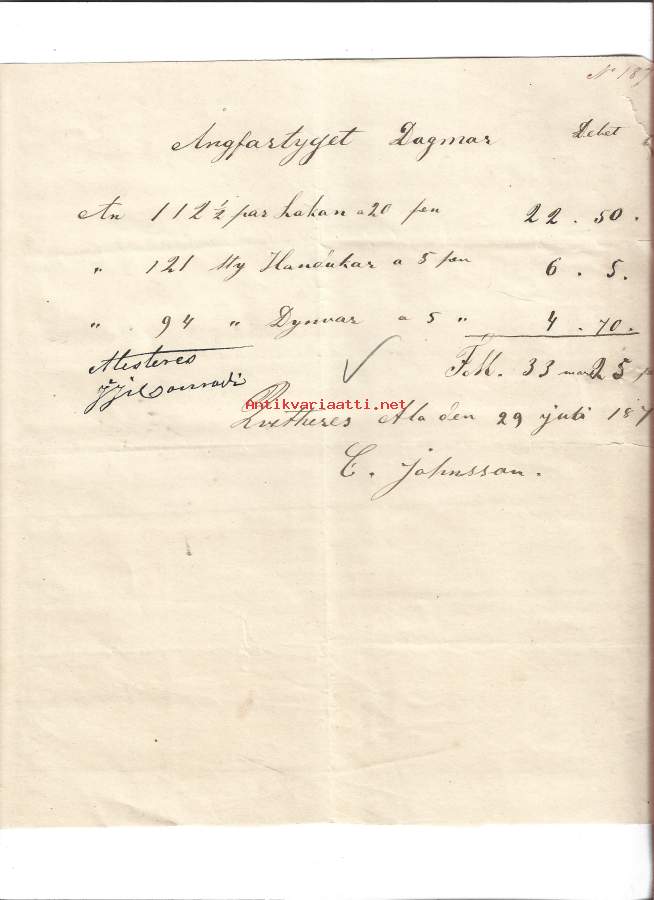 No 187
Ångfartyget Dagmar Debet
An 112 1/2 par Lakan a 20 pen 22.50.
" 121 sty Handukar a 5 pen 6.5.
" 94 " Dynvar a 5 " 4.70.
Attesteres F.M. 33 mark 25 p
Antikvariaatti.net
Qvitteres Åbo den 29 juli 187
C. Johnsson.